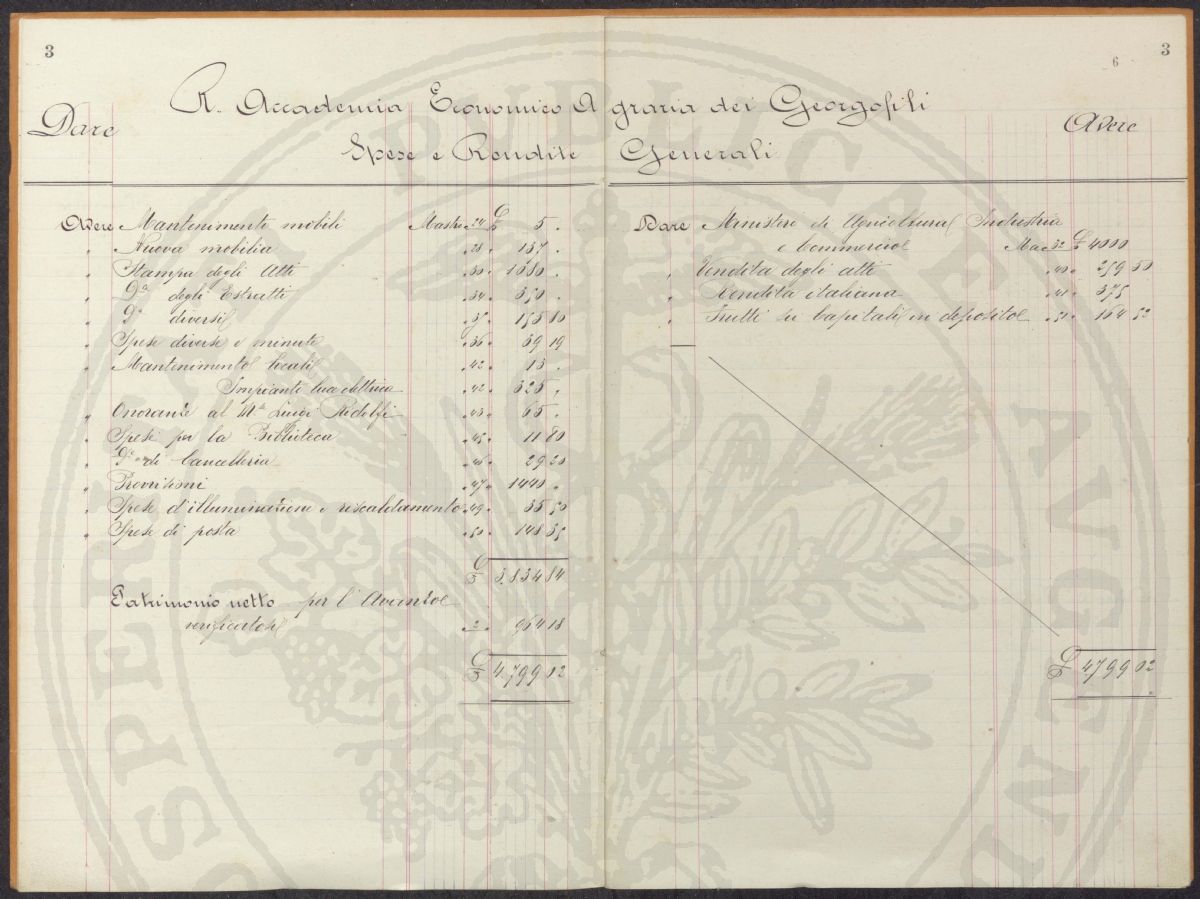 3
6
3
R. Accademia Economico Agraria dei Georgofili
Dare
Avere
Spese e Rendite Generali
Avere Mantenimento mobili Mastro 24 £ 5 .
" Nuova mobilia " 28 " 137 .
" Stampa degli Atti " 30 " 1080 .
" Dª degli Estratti " 34 " 350 .
" Dª diversi " 35 " 155 80
" Spese diverse e minute " 36 " 39 19
" Mantenimento locali " 42 " 13 .
Impianto luce elettrica " 42 " 325 .
" Onoranze al Mse Luigi Ridolfi " 43 " 65 .
" Spese per la Biblioteca " 45 " 11 80
" Dª di Cancelleria " 46 " 29 20
" Provvisioni " 47 " 1440 "
" Spese d'illuminazione e riscaldamento " 49 " 35 50
" Spese di posta " 50 " 148 35
£ 3.834 84
Patrimonio netto per l'Avanzo
verificatosi " 2 " 964 18
£ 4.799 02
Dare Ministero di Agricoltura Industria
e Commercio Mas 32 £ 4000
" Vendita degli atti " 40 " 259 50
" Rendita italiana " 41 " 375
" Frutti su Capitali in deposito " 51 " 164 52
£ 4799 02
SPERITATI PVBLICAE AVGENDAE